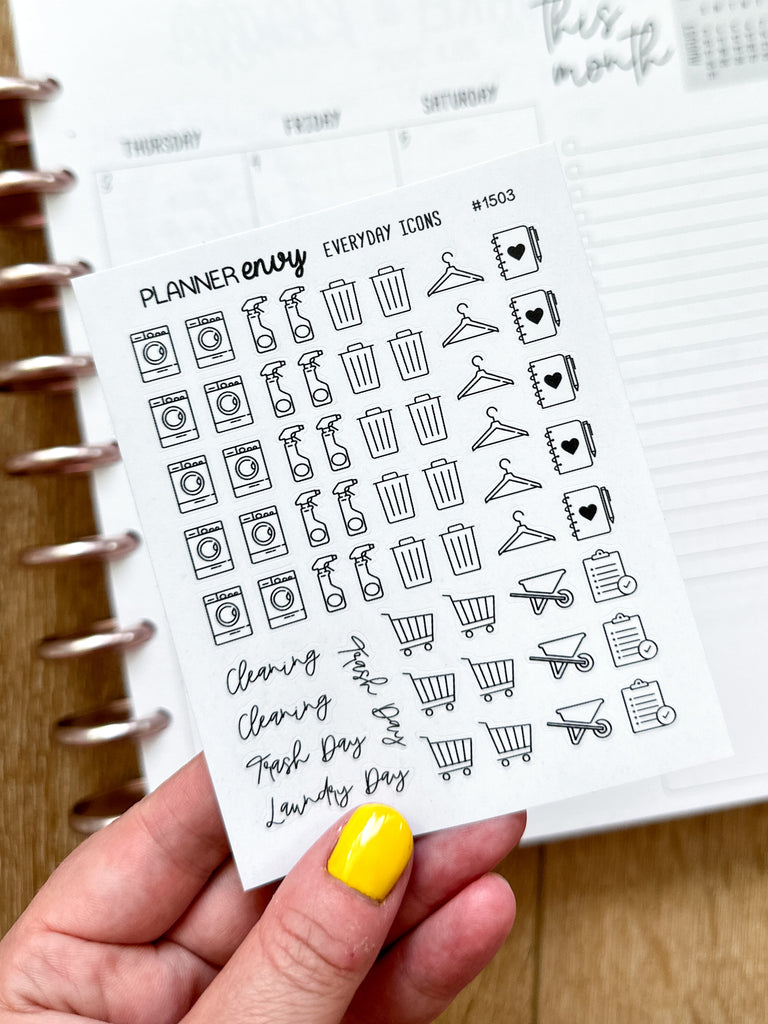 this
month
THURSDAY
FRIDAY
SATURDAY
3
4
5
PLANNER envy
EVERYDAY ICONS
#1503
Cleaning
Trash Day
Cleaning
Trash Day
Laundry Day